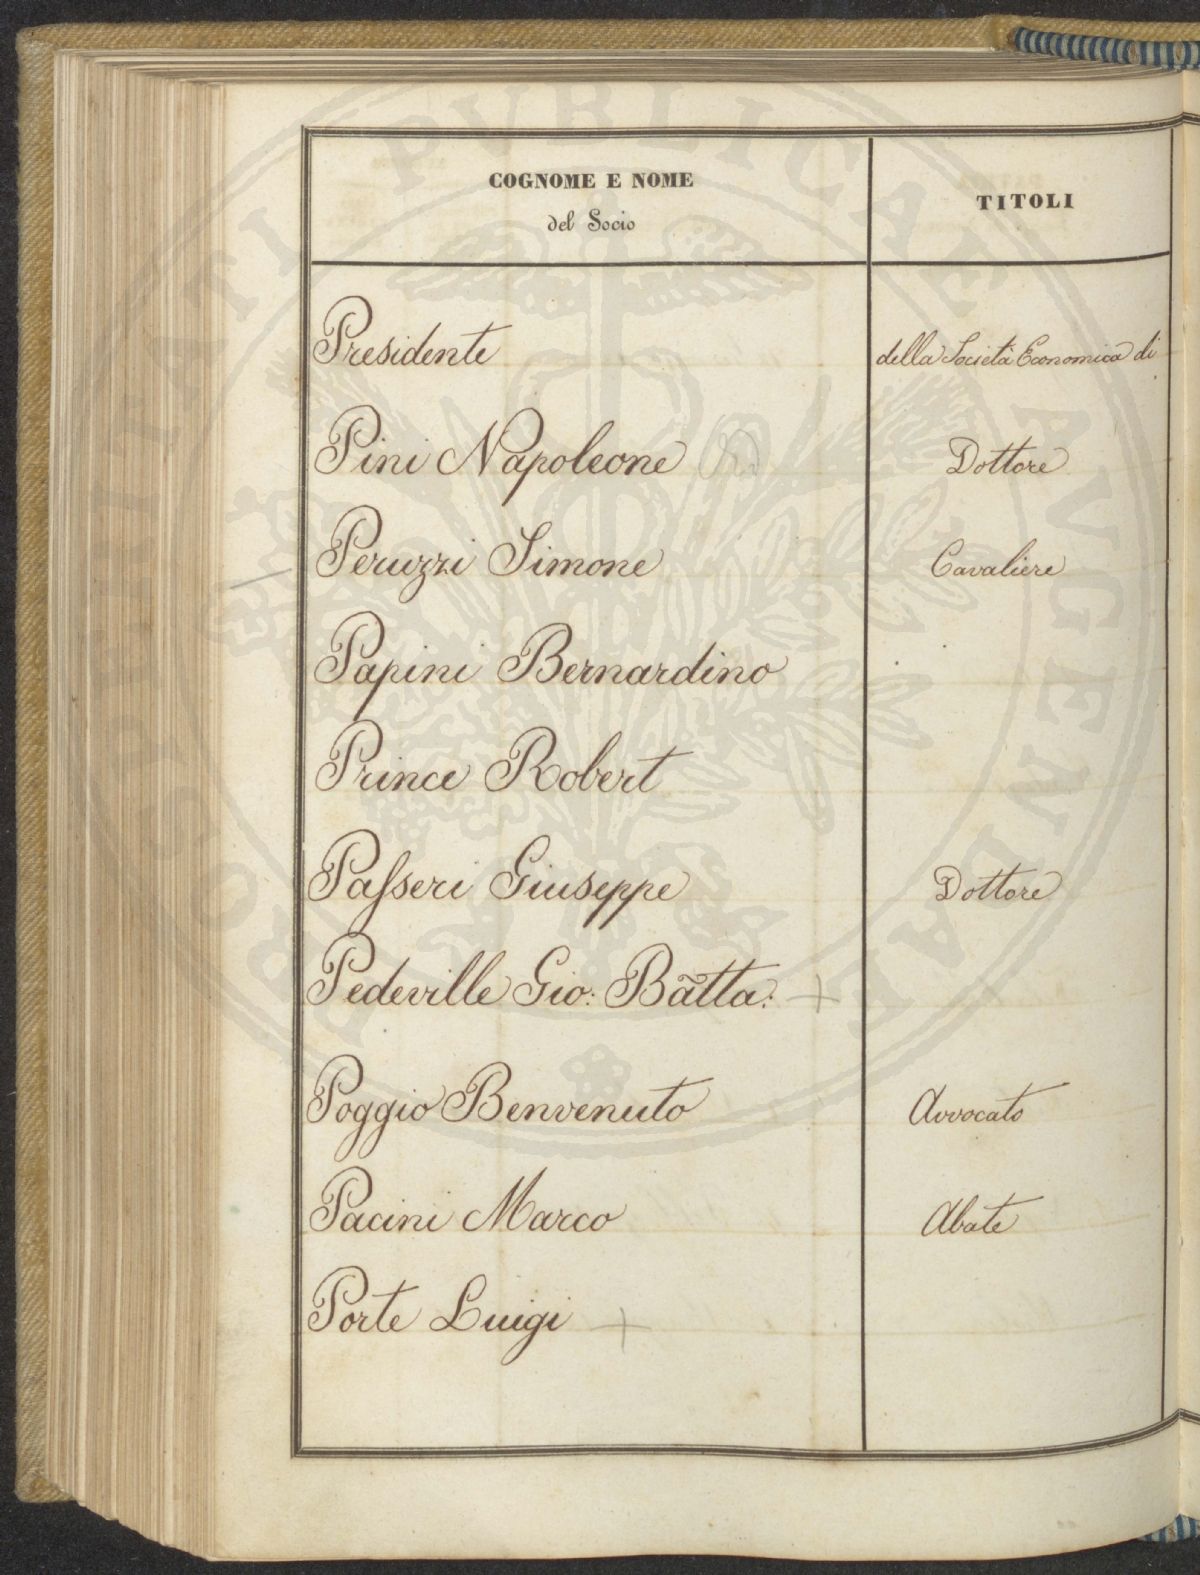 COGNOME E NOME
del Socio
TITOLI
Presidente della Società Economica di
Pini Napoleone Dottore
Peruzzi Simone Cavaliere
Papini Bernardino
Prince Robert
Paſseri Giuseppe Dottore
Pedeville Gio: Bãtta:
Poggio Benvenuto Avvocato
Pacini Marco Abate
Porte Luigi
PUBLICAE AUGENDAE